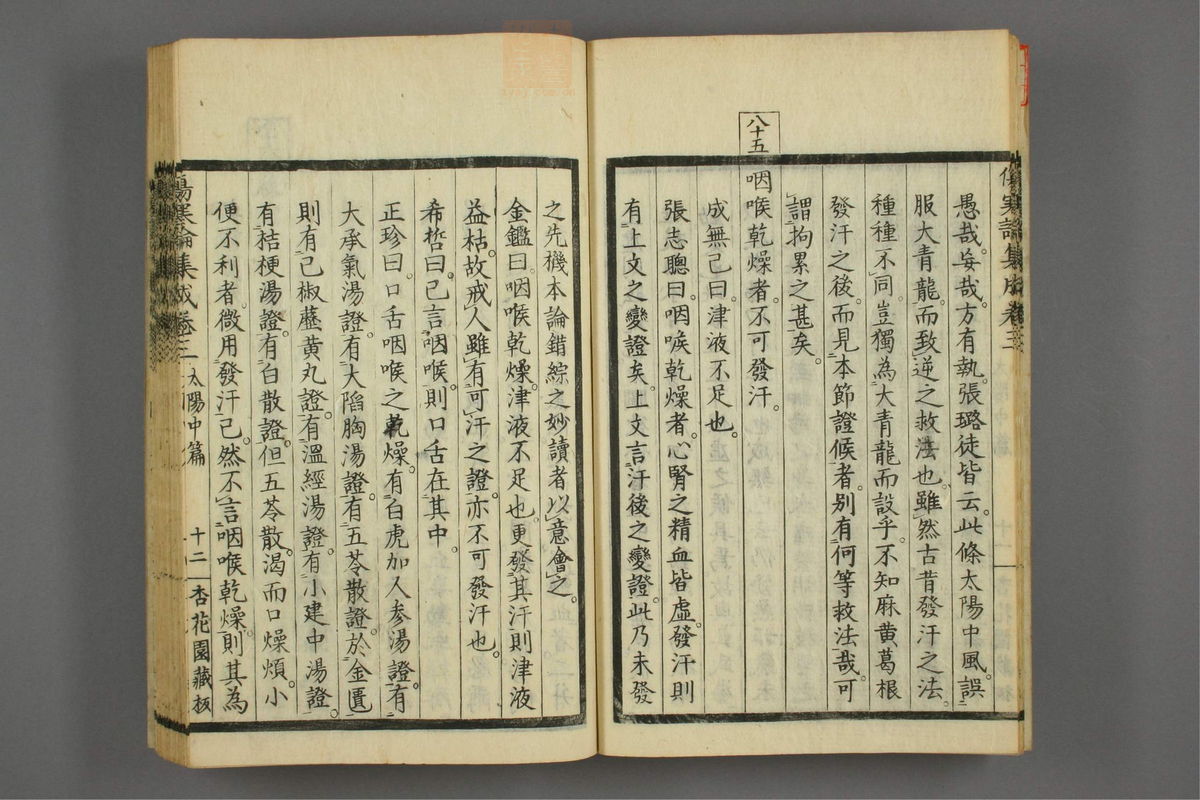 傷寒論集成卷三
愚哉。妄哉。方有執。張璐徒皆云。此條太陽中風。誤
服大青龍。而致逆之救法也。雖然古昔發汗之法。
種種不同。豈獨為大青龍而設乎。不知麻黄葛根
發汗之後。而見本節證候者。别有何等救法哉。可
謂拘累之甚矣。
八十五
咽喉乾燥者。不可發汗。
成無己曰。津液不足也。
張志聰曰。咽喉乾燥者。心腎之精血皆虛。發汗則
有上文之變證矣。上文言汗後之變證。此乃未發
之先機本論錯綜之妙。讀者以意會之。
金鑑曰。咽喉乾燥。津液不足也。更發其汗則津液
益枯。故戒人雖有可汗之證。亦不可發汗也。
希哲曰。已言咽喉。則口舌在其中。
正珍曰。口舌咽喉之乾燥。有白虎加人參湯證。有
大承氣湯證。有大陷胸湯證。有五苓散證。於金匱
則有己椒藶黄丸證。有溫經湯證。有小建中湯證。
有桔梗湯證。有白散證。但五苓散。渴而口燥煩。小
便不利者。微用發汗已。然不言咽喉乾燥。則其為
傷寒論集成卷三 太陽中篇 十二 杏花園藏板